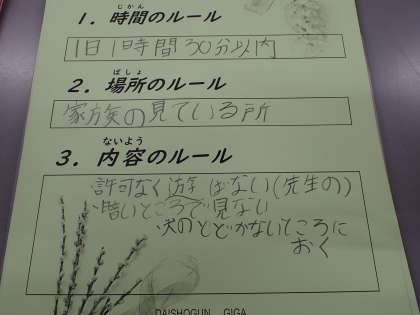 じかん
1. 時間のルール
1日1時間30分以内
ばしょ
2. 場所のルール
家族の見ている所
ないよう
3. 内容のルール
・許可なく遊ばない(先生の)
・暗いところで見ない
・犬のとどかないところに
おく
DAISHOGUN GIGA